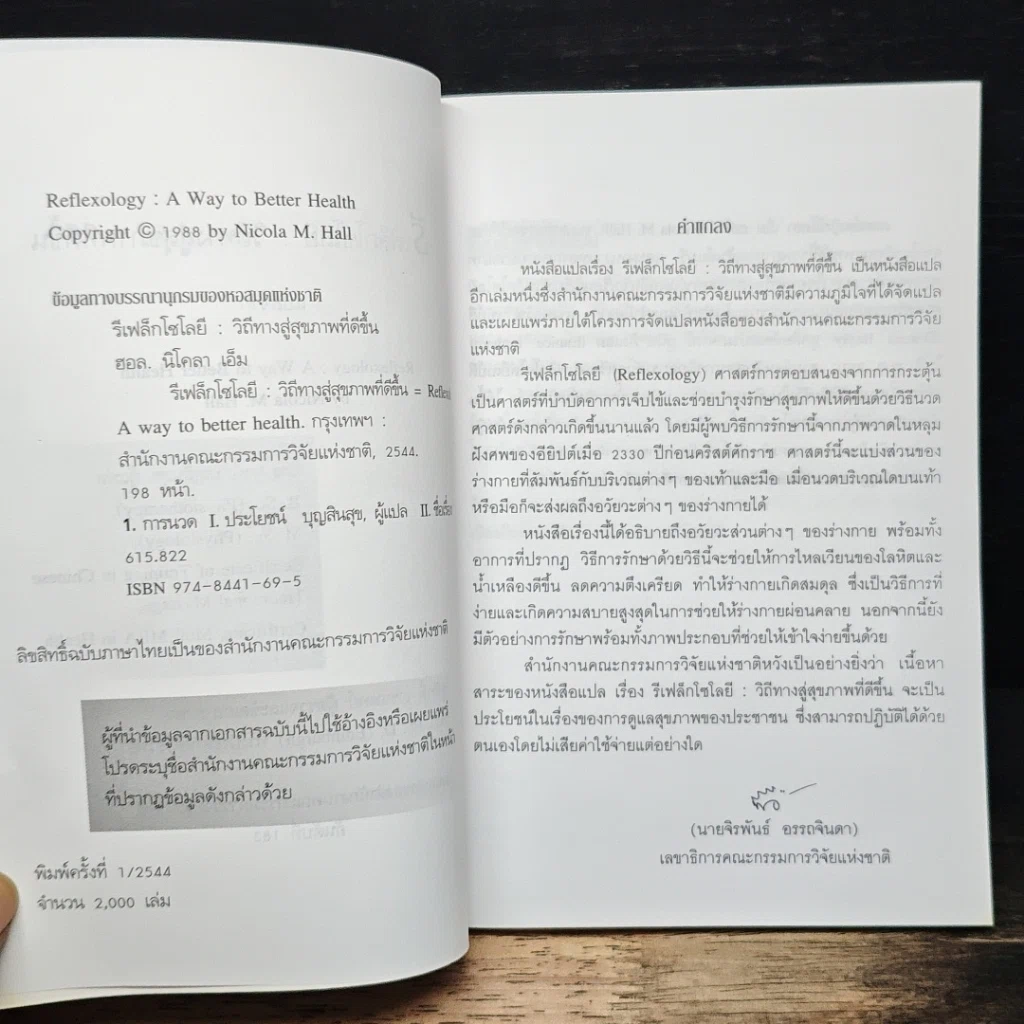 Reflexology : A Way to Better Health
Copyright © 1988 by Nicola M. Hall
ข้อมูลทางบรรณานุกรมของหอสมุดแห่งชาติ
รีเฟล็กโซโลยี : วิถีทางสู่สุขภาพที่ดีขึ้น
ฮอล. นิโคลา เอ็ม
รีเฟล็กโซโลยี : วิถีทางสู่สุขภาพที่ดีขึ้น =
A way to better health. กรุงเทพฯ :
สำนักงานคณะกรรมการวิจัยแห่งชาติ, 2544.
198 หน้า.
1. การนวด I. ประโยชน์ บุญสินสุข, ผู้แปล II.
615.822
ISBN 974-8441-69-5
ลิขสิทธิ์ฉบับภาษาไทยเป็นของสำนักงานคณะกรรมการวิจัยแห่งชาติ
ผู้ที่นำข้อมูลจากเอกสารฉบับนี้ไปใช้อ้างอิงหรือเผยแพร่
โปรดระบุชื่อสำนักงานคณะกรรมการวิจัยแห่งชาติในหน้า
ที่ปรากฏข้อมูลดังกล่าวด้วย
พิมพ์ครั้งที่ 1/2544
จำนวน 2,000 เล่ม
คำแถลง
หนังสือแปลเรื่อง รีเฟล็กโซโลยี : วิถีทางสู่สุขภาพที่ดีขึ้น เป็นหนังสือแปล
อีกเล่มหนึ่งซึ่งสำนักงานคณะกรรมการวิจัยแห่งชาติมีความภูมิใจที่ได้จัดแปล
และเผยแพร่ภายใต้โครงการจัดแปลหนังสือของสำนักงานคณะกรรมการวิจัย
แห่งชาติ
รีเฟล็กโซโลยี (Reflexology) ศาสตร์การตอบสนองจากการกระตุ้น
เป็นศาสตร์ที่บำบัดอาการเจ็บไข้และช่วยบำรุงรักษาสุขภาพให้ดีขึ้นด้วยวิธีนวด
ศาสตร์ดังกล่าวเกิดขึ้นนานแล้ว โดยมีผู้พบวิธีการรักษานี้จากภาพวาดในหลุม
ฝังศพของอียิปต์เมื่อ 2330 ปีก่อนคริสต์ศักราช ศาสตร์นี้จะแบ่งส่วนของ
ร่างกายที่สัมพันธ์กับบริเวณต่างๆ ของเท้าและมือ เมื่อนวดบริเวณใดบนเท้า
หรือมือก็จะส่งผลถึงอวัยวะต่างๆ ของร่างกายได้
หนังสือเรื่องนี้ได้อธิบายถึงอวัยวะส่วนต่างๆ ของร่างกาย พร้อมทั้ง
อาการที่ปรากฏ วิธีการรักษาด้วยวิธีนี้จะช่วยให้การไหลเวียนของโลหิตและ
น้ำเหลืองดีขึ้น ลดความตึงเครียด ทำให้ร่างกายเกิดสมดุล ซึ่งเป็นวิธีการที่
ง่ายและเกิดความสบายสูงสุดในการช่วยให้ร่างกายผ่อนคลาย นอกจากนี้ยัง
มีตัวอย่างการรักษาพร้อมทั้งภาพประกอบที่ช่วยให้เข้าใจง่ายขึ้นด้วย
สำนักงานคณะกรรมการวิจัยแห่งชาติหวังเป็นอย่างยิ่งว่า เนื้อหา
สาระของหนังสือแปล เรื่อง รีเฟล็กโซโลยี : วิถีทางสู่สุขภาพที่ดีขึ้น จะเป็น
ประโยชน์ในเรื่องของการดูแลสุขภาพของประชาชน ซึ่งสามารถปฏิบัติได้ด้วย
ตนเองโดยไม่เสียค่าใช้จ่ายแต่อย่างใด
(นายจิรพันธ์ อรรถจินดา)
เลขาธิการคณะกรรมการวิจัยแห่งชาติ